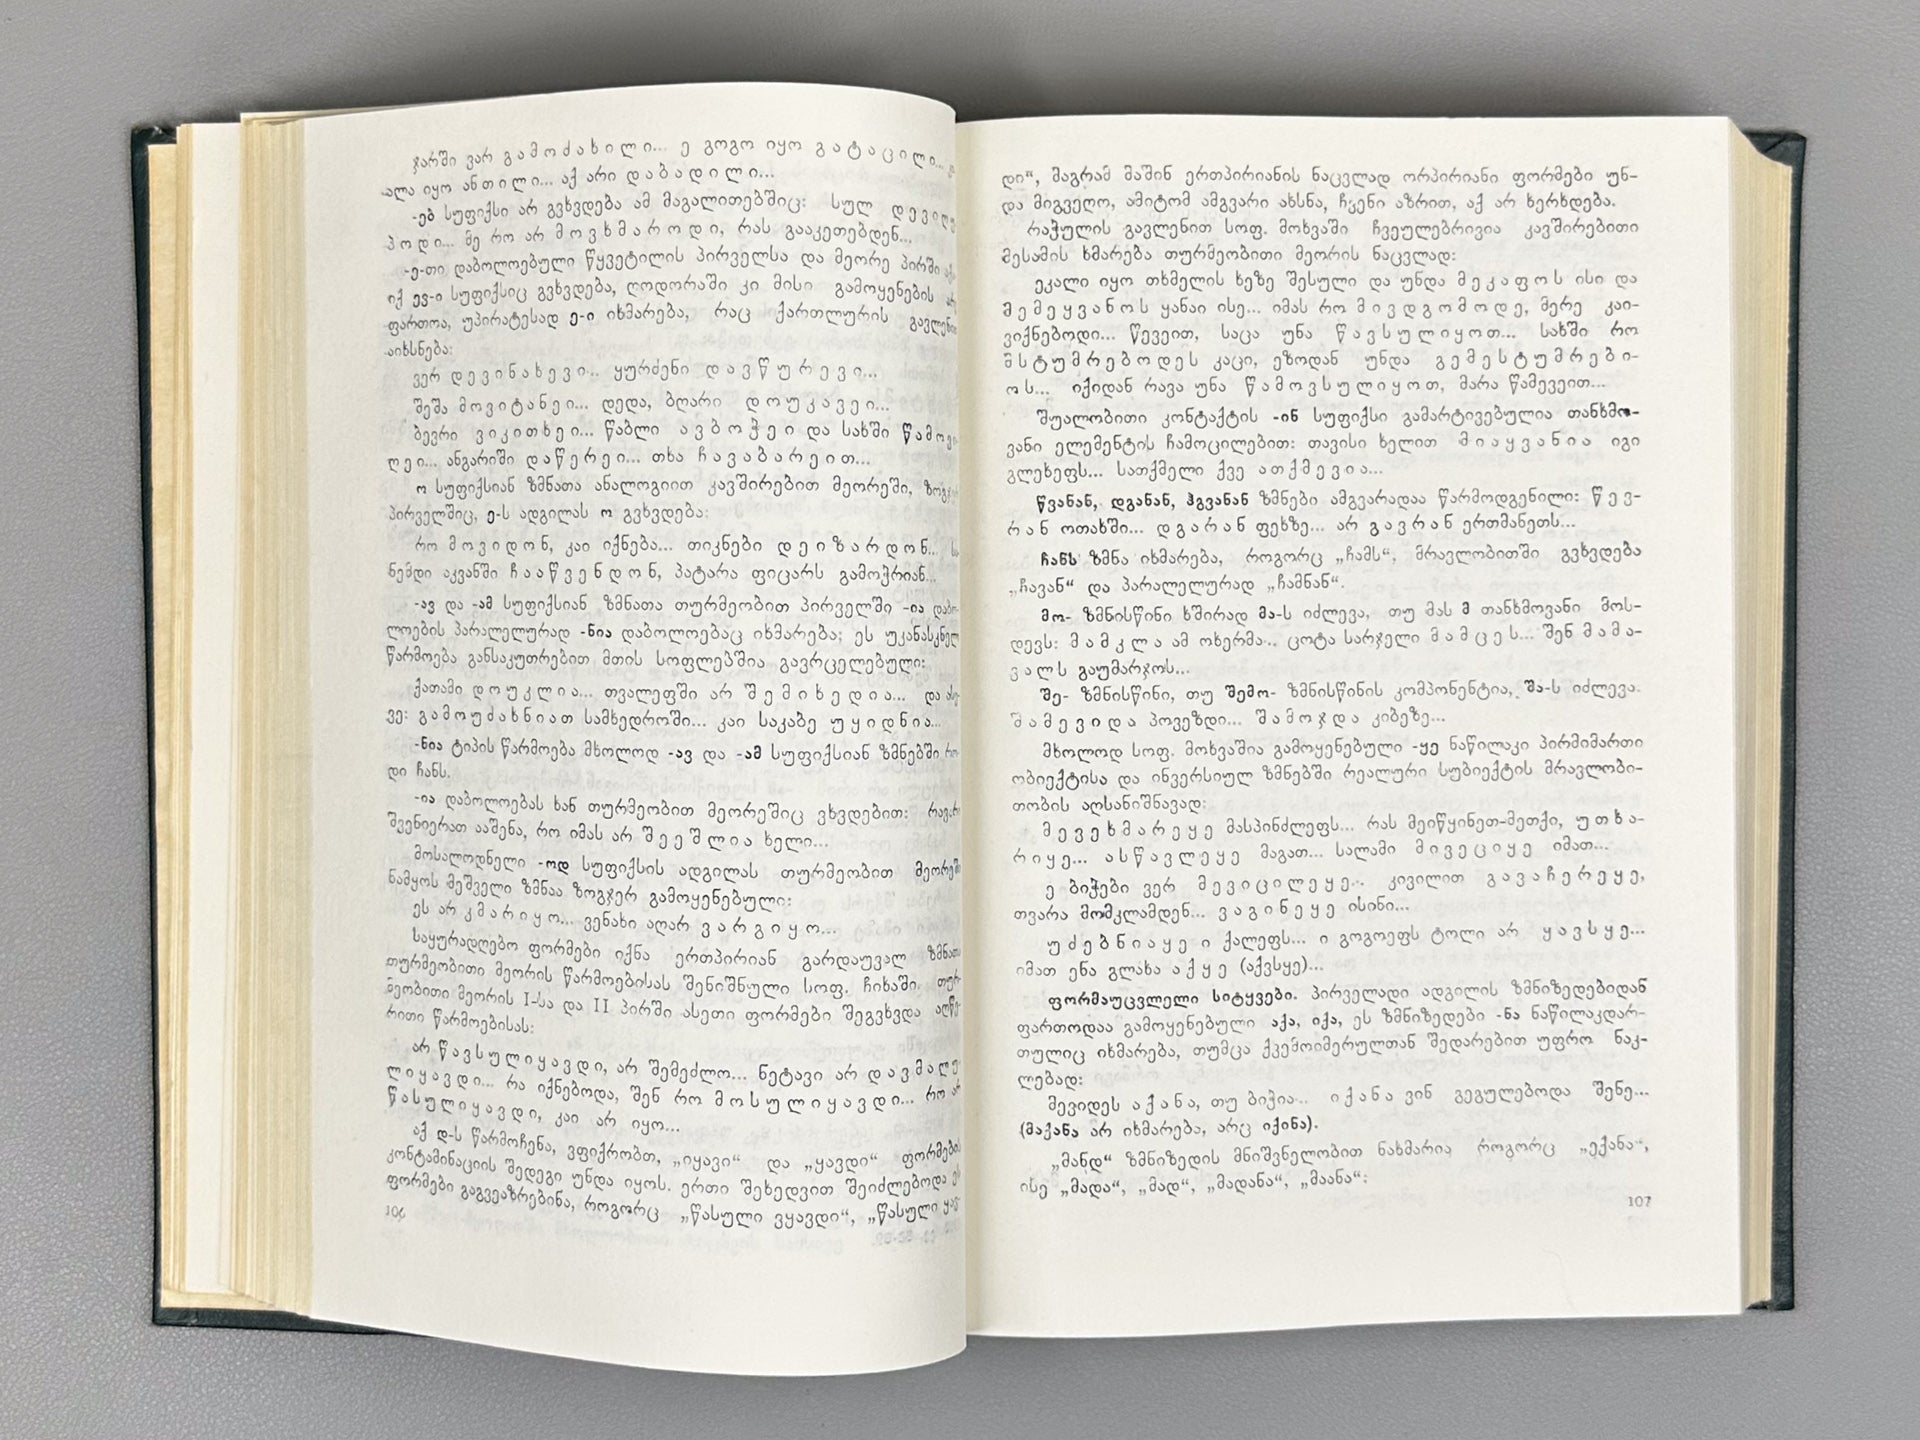 ჯარში ვარ გამოძახილი... ე გოგო იყო გატაცილი...
ალა იყო ანთილი... აქ არი დაბადილი...
-ებ სუფიქსი არ გვხვდება ამ მაგალითებშიც: სულ
პოდი... მე რო არ მოვხმაროდი, რას გააკეთებდენ...
-ე-თი დაბოლოებული წყვეტილის პირველსა და მეორე პირში
იქ ევ-ი სუფიქსიც გვხვდება, ღოდორაში კი მისი გამოყენების
ფართოა, უპირატესად ე-ი იხმარება, რაც ქართლურის გავლენით
აიხსნება:
ვერ დევინახევი... ყურძენი დავწურევი...
შეშა მოვიტანეი... დედა, ბღარი დოუკავეი...
ბევრი ვიკითხეი... წაბლი ავბოჭეი და სახში წამოვი-
ღეი... ანგარიში დაწერეი... თხა ჩავაბარეით...
ო სუფიქსიან ზმნათა ანალოგიით კავშირებით მეორეში, ზოგჯერ
პირველშიც, ე-ს ადგილას ო გვხვდება:
რო მოვიდონ, კაი იქნება... თიკნები დეიზარდონ...
ნემდი აკვანში ჩააწვენდონ, პატარა ფიცარს გამოჭრიან...
-ავ და -ამ სუფიქსიან ზმნათა თურმეობით პირველში -ია დაბო-
ლოების პარალელურად -ნია დაბოლოებაც იხმარება; ეს უკანასკნელი
წარმოება განსაკუთრებით მთის სოფლებშია გავრცელებული:
ქათამი დოუკლია... თვალეფში არ შემიხედია... და ასე-
ვე: გამოუძახნიათ სამხედროში... კაი საკაბე უყიდნია...
-ნია ტიპის წარმოება მხოლოდ -ავ და -ამ სუფიქსიან ზმნებში რო-
დი ჩანს.
-ია დაბოლოებას ხან თურმეობით მეორეშიც ვხვდებით: რავარი
შვენიერათ ააშენა, რო იმას არ შეეშლია ხელი...
მოსალოდნელი -ოდ სუფიქსის ადგილას თურმეობით მეორეში
ნამყოს მეშველი ზმნაა ზოგჯერ გამოყენებული:
ეს არ კმარიყო... ვენახი აღარ ვარგიყო...
საყურადღებო ფორმები იქნა ერთპირიან გარდაუვალ ზმნათა
თურმეობითი მეორის წარმოებისას შენიშნული სოფ. ჩიხაში. თურ-
მეობითი მეორის I-სა და II პირში ასეთი ფორმები შეგვხვდა აღწე-
რითი წარმოებისას:
არ წავსულიყავდი, არ შემეძლო... ნეტავი არ დავმალუ-
ლიყავდი... რა იქნებოდა, შენ რო მოსულიყავდი... რო არ
წასულიყავდი, კაი არ იყო...
აქ დ-ს წარმოჩენა, ვფიქრობთ, „იყავი“ და „ყავდი“ ფორმების
კონტამინაციის შედეგი უნდა იყოს. ერთი შეხედვით შეიძლებოდა ეს
ფორმები გაგვეაზრებინა, როგორც „წასული ვყავდი“, „წასული ყავ-
106
დი“, მაგრამ მაშინ ერთპირიანის ნაცვლად ორპირიანი ფორმები უნ-
და მიგვეღო, ამიტომ ამგვარი ახსნა, ჩვენი აზრით, აქ არ ხერხდება.
რაჭულის გავლენით სოფ. მოხვაში ჩვეულებრივია კავშირებითი
მესამის ხმარება თურმეობითი მეორის ნაცვლად:
ეკალი იყო თხმელის ხეზე შესული და უნდა მეკაფოს ისი და
მემეყვანოს ყანაი ისე... იმას რო მივდგომოდე, მერე კაი-
ვიქნებოდი... წევეით, საცა უნა წავსულიყოთ... სახში რო
მსტუმრებოდეს კაცი, ეზოდან უნდა გემესტუმრები-
ოს... იქიდან რავა უნა წამოვსულიყოთ, მარა წამევეით...
შუალობითი კონტაქტის -ინ სუფიქსი გამარტივებულია თანხმო-
ვანი ელემენტის ჩამოცილებით: თავისი ხელით მიაყვანია იგი
გლეხეფს... სათქმელი ქვე ათქმევია...
წვანან, დგანან, ჰგვანან ზმნები ამგვარადაა წარმოდგენილი: წევ-
რან ოთახში... დგარან ფეხზე... არ გავრან ერთმანეთს...
ჩანს ზმნა იხმარება, როგორც „ჩამს“, მრავლობითში გვხვდება
„ჩავან“ და პარალელურად „ჩამნან“.
მო- ზმნისწინი ხშირად მა-ს იძლევა, თუ მას მ თანხმოვანი მოს-
დევს: მამკლა ამ ოხერმა... ცოტა სარჯელი მამცეს... შენ მამა-
ვალს გაუმარჯოს...
შე- ზმნისწინი, თუ შემო- ზმნისწინის კომპონენტია, შა-ს იძლევა.
შამევიდა პოვეზდი... შამოჯდა კიბეზე...
მხოლოდ სოფ. მოხვაშია გამოყენებული -ყე ნაწილაკი პირმიმართი
ობიექტისა და ინვერსიულ ზმნებში რეალური სუბიექტის მრავლობი-
თობის აღსანიშნავად:
მევეხმარეყე მასპინძლეფს... რას მეიწყინეთ-მეთქი, უთხა-
რიყე... ასწავლეყე მაგათ... სალამი მივეციყე იმათ...
ე ბიჭები ვერ მევიცილეყე... კივილით გავაჩერეყე,
თვარა მომკლამდენ... ვაგინეყე ისინი...
უძებნიაყე ი ქალეფს... ი გოგოეფს ტოლი არ ყავსყე...
იმათ ენა გლახა აქყე (აქვსყე)...
ფორმაუცვლელი სიტყვები. პირველადი ადგილის ზმნიზედებიდან
ფართოდაა გამოყენებული აქა, იქა, ეს ზმნიზედები -ნა ნაწილაკდარ-
თულიც იხმარება, თუმცა ქვემოიმერულთან შედარებით უფრო ნაკ-
ლებად:
მევიდეს აქანა, თუ ბიჭია... იქანა ვინ გეგულებოდა შენე...
(მაქანა არ იხმარება, არც იქინა).
„მანდ“ ზმნიზედის მნიშვნელობით ნახმარია როგორც „ექანა“,
ისე „მადა“, „მად“, „მადანა“, „მაანა“:
107